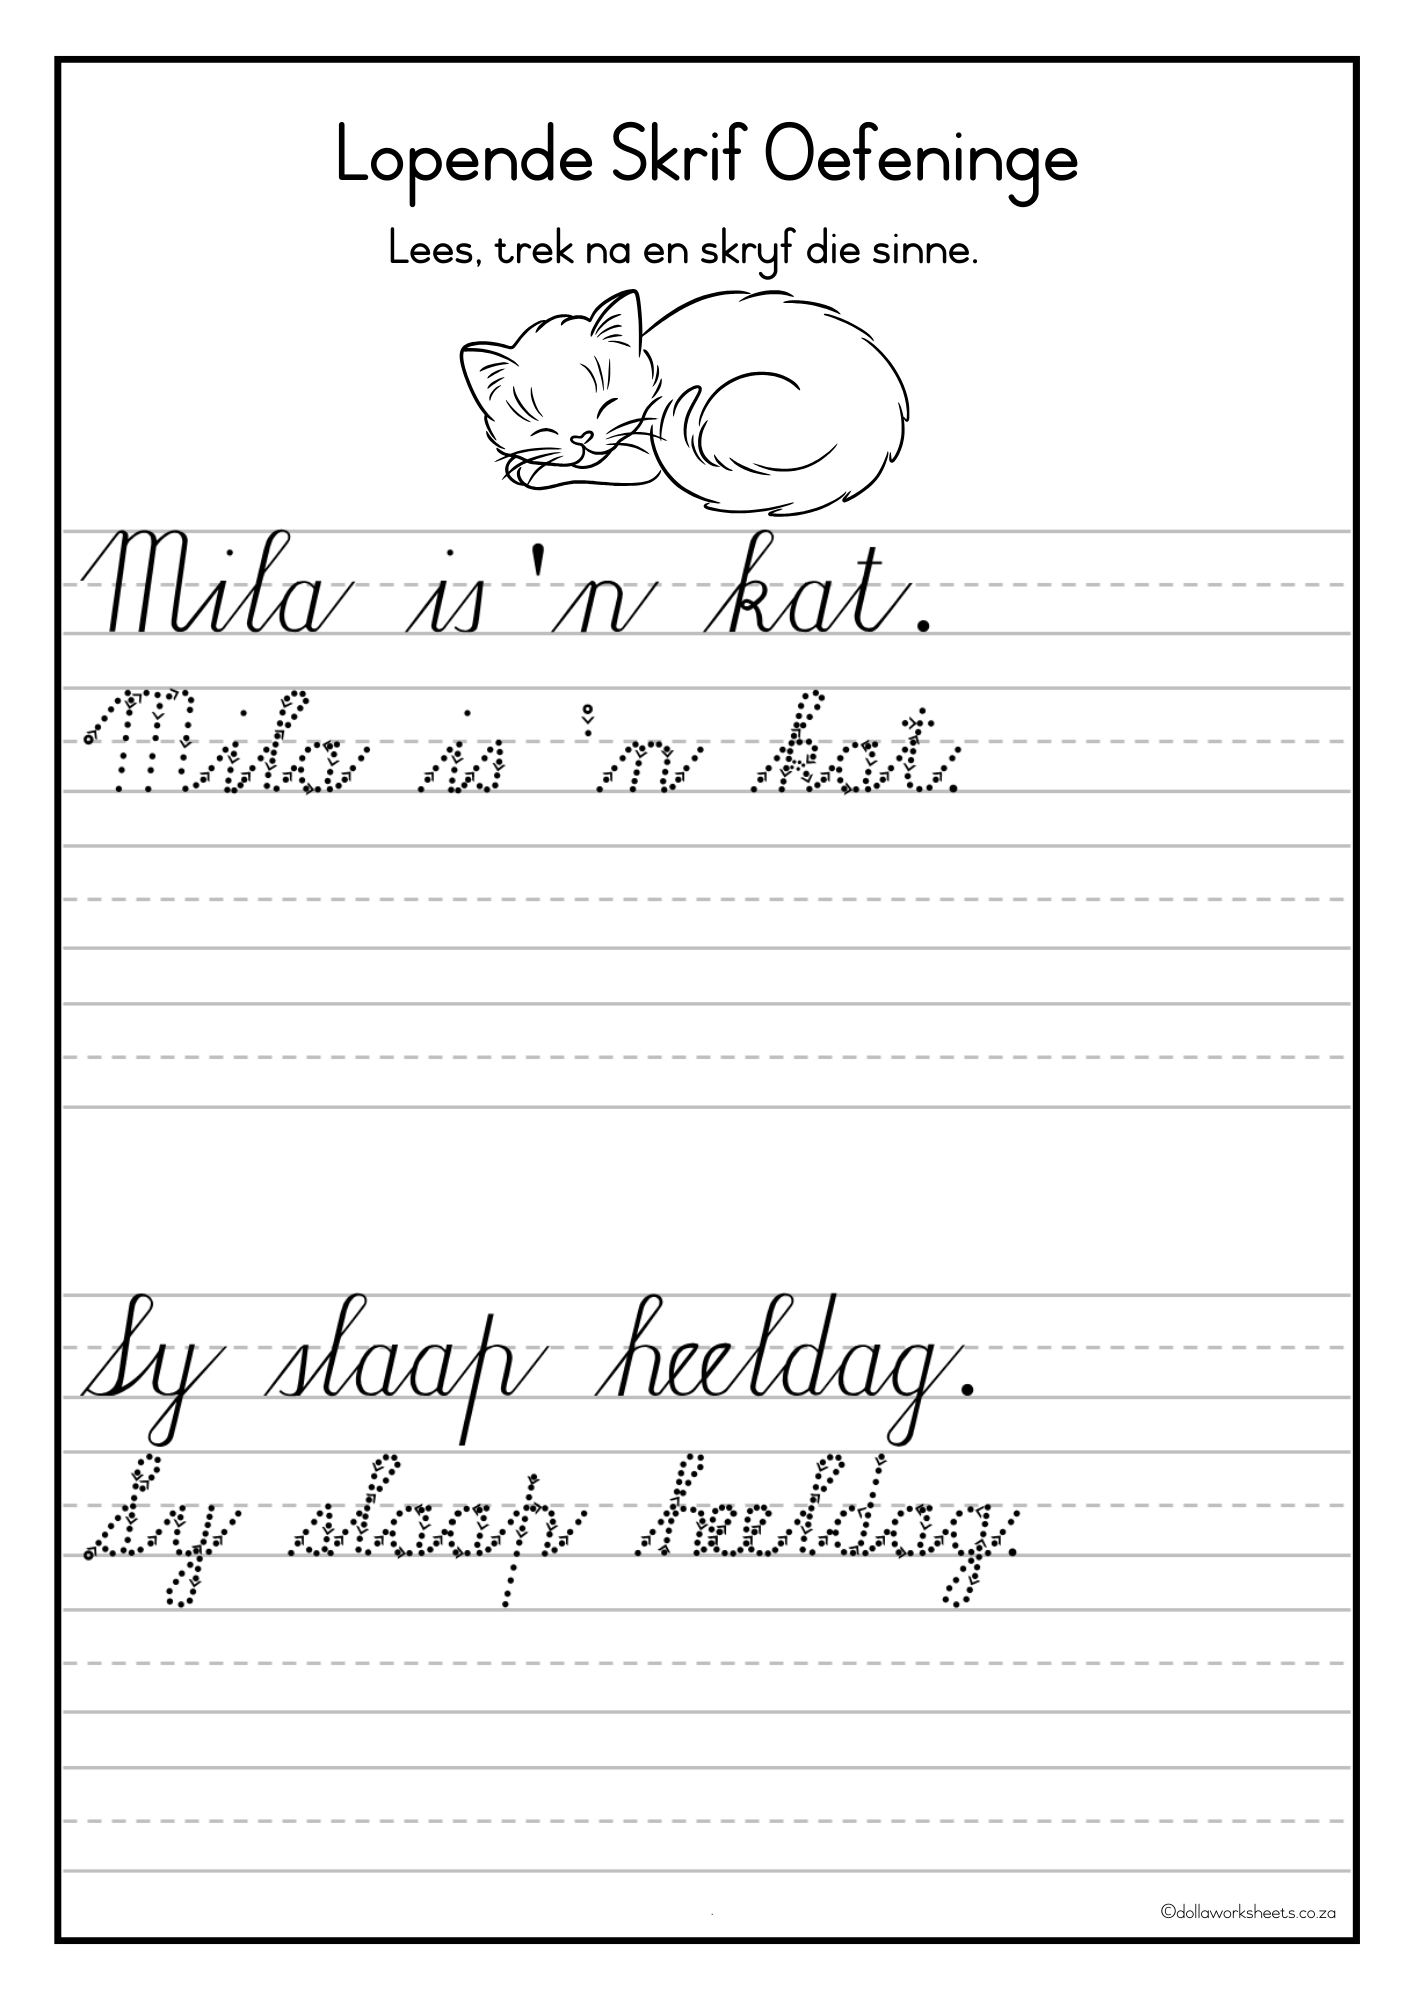 Lopende Skrif Oefeninge
Lees, trek na en skryf die sinne.
Mila is 'n kat.
Mila is 'n kat.
Sy slaap heeldag.
Sy slaap heeldag.
©dollaworksheets.co.za